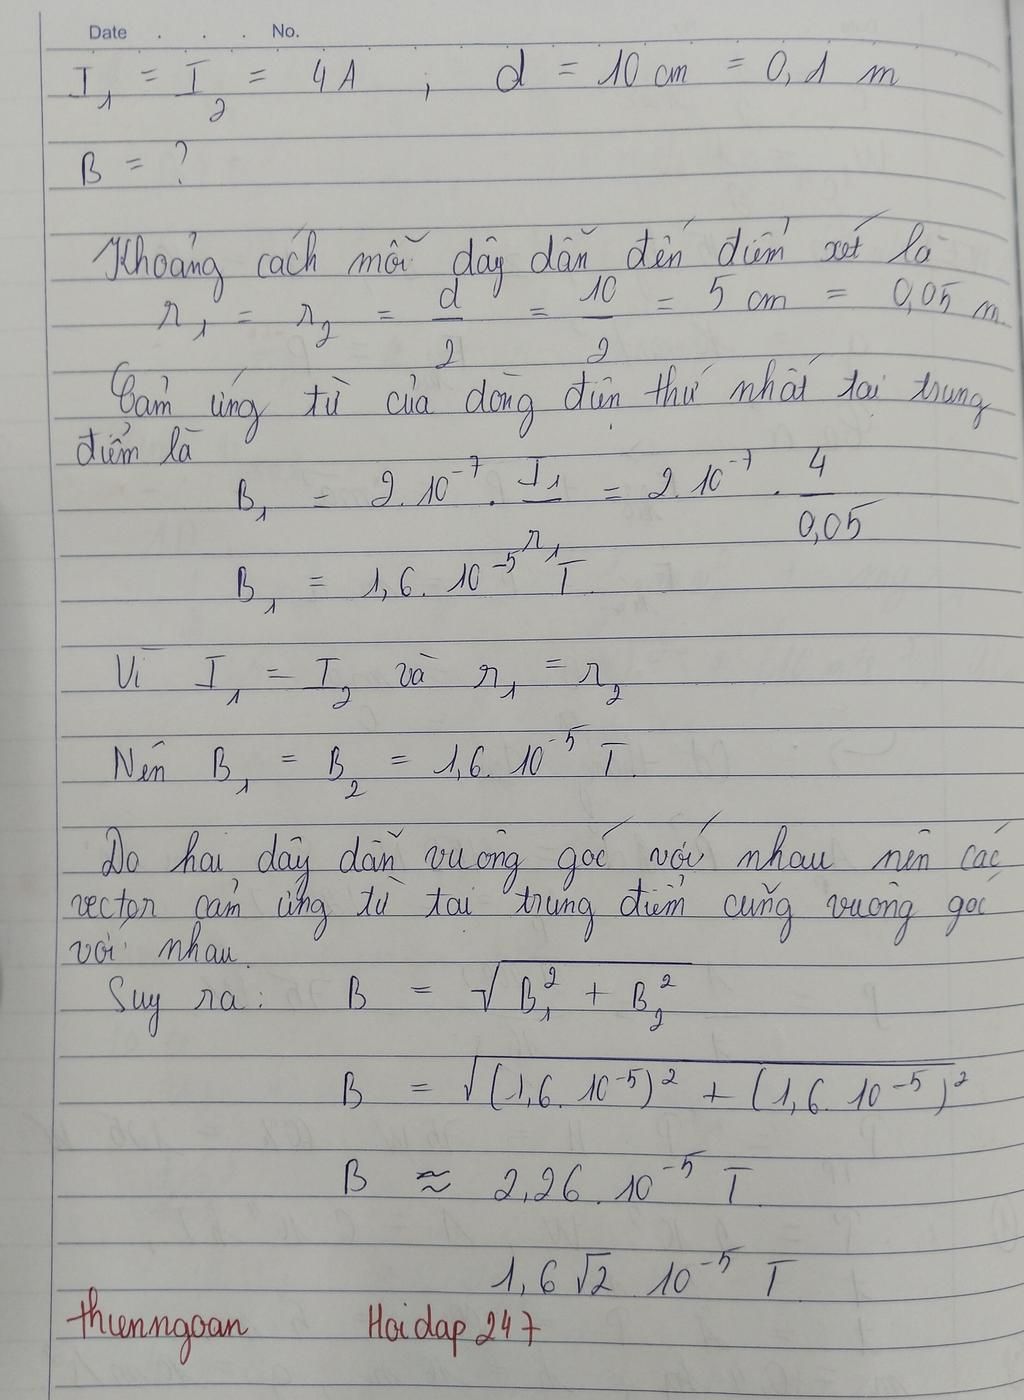 Date . . . No.
I₁ = I₂ = 4A ; d = 10 cm = 0,1 m
B = ?
Khoảng cách mỗi dây dẫn đến điểm xét là
r₁ = r₂ = d/2 = 10/2 = 5 cm = 0,05 m.
Cảm ứng từ của dòng điện thứ nhất tại trung
điểm là
B₁ = 2.10⁻⁷ . I₁/r₁ = 2.10⁻⁷ . 4/0,05
B₁ = 1,6. 10⁻⁵ T
Vì I₁ = I₂ và r₁ = r₂
Nên B₁ = B₂ = 1,6. 10⁻⁵ T.
Do hai dây dẫn vuông góc với nhau nên các
vector cảm ứng từ tại trung điểm cũng vuông góc
với nhau.
Suy ra: B = √(B₁² + B₂²)
B = √((1,6. 10⁻⁵)² + (1,6. 10⁻⁵)²)
B ≈ 2,26. 10⁻⁵ T.
1,6√2 10⁻⁵ T
thienngoan Hoidap247